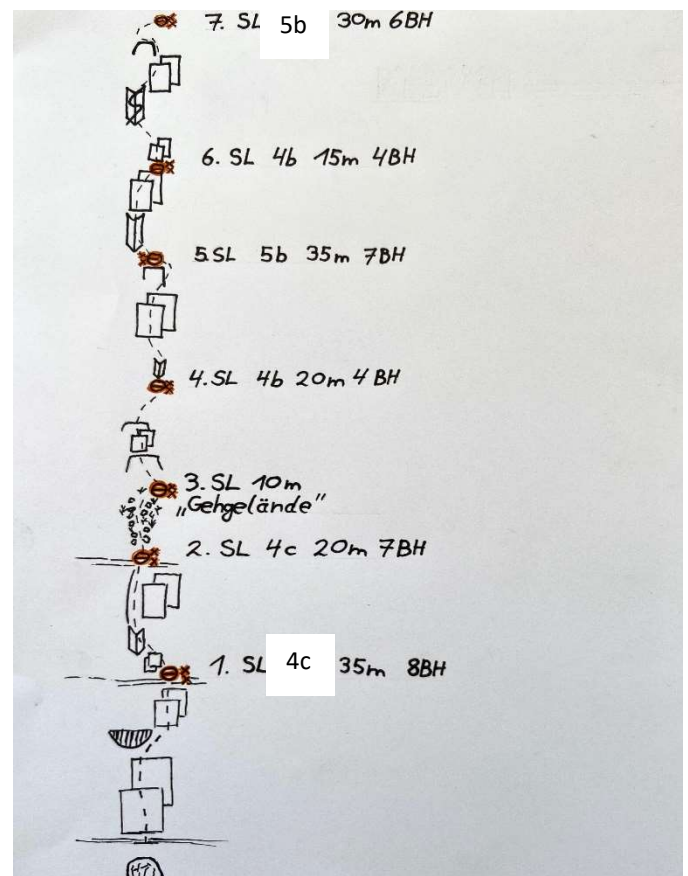 7. SL 5b 30m 6BH
6. SL 4b 15m 4BH
5.SL 5b 35m 7BH
4.SL 4b 20m 4BH
3. SL 10m
„Gehgelände"
2. SL 4c 20m 7BH
1. SL 4c 35m 8BH